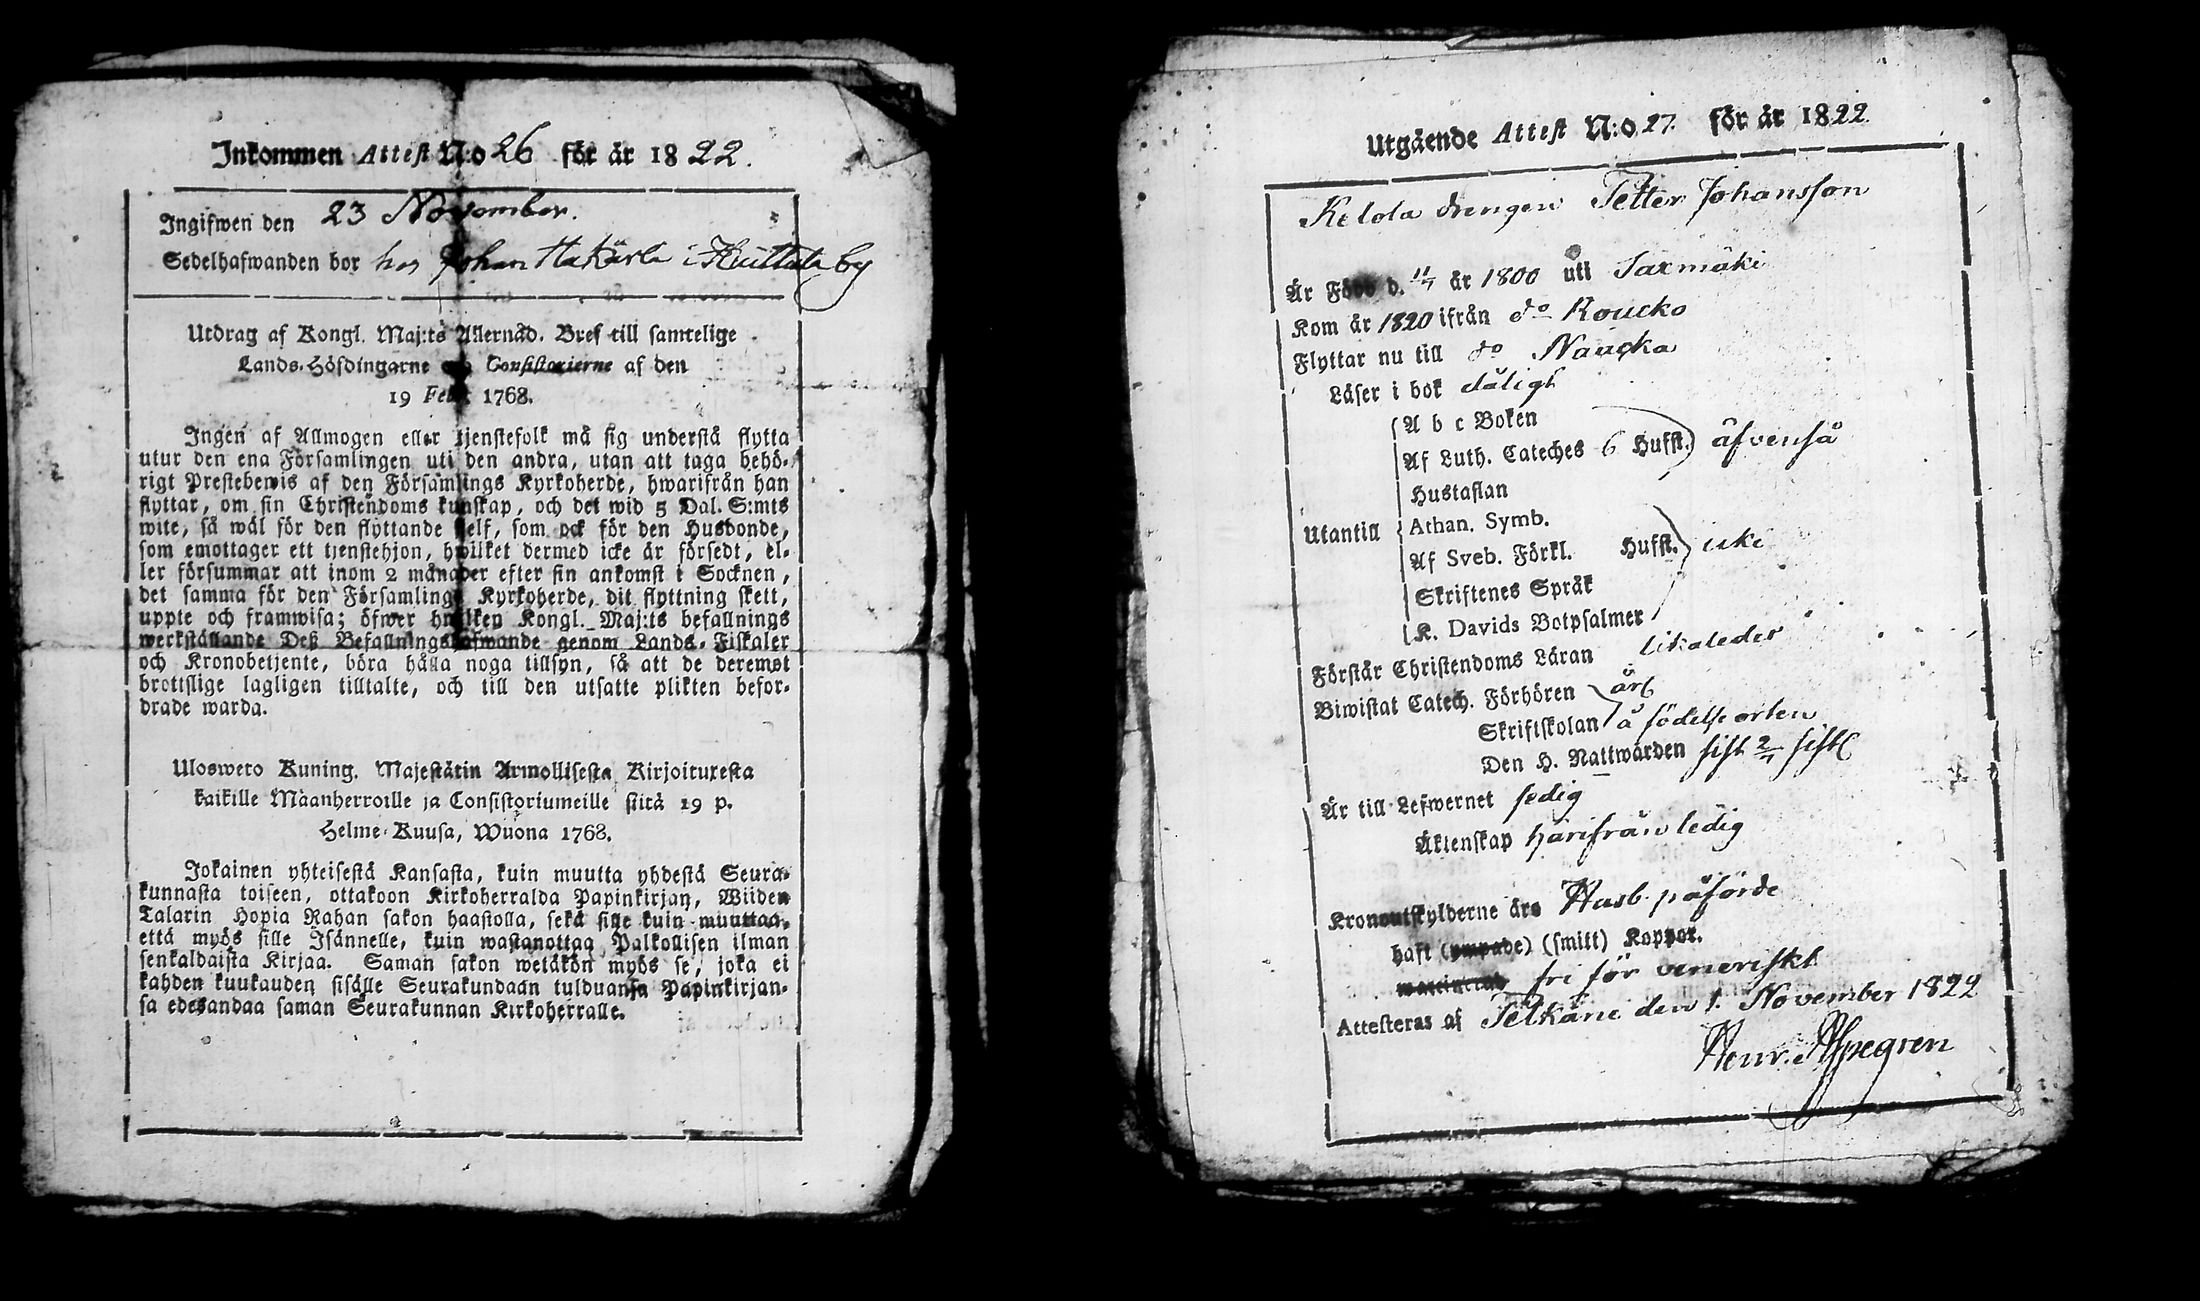 Inkommen Attest N:o 26 för år 1822.
Ingifwen den 23 November.
Sedelhafwanden bor hos Johan i by
Utdrag af Kongl. Maj:ts Allernåd. Bref till samtelige
Lands-Höfdingarne och Consistorierne af den
19 Febr. 1768.
Ingen af Allmogen eller tjenstefolk må sig understå flytta
utur den ena Församlingen uti den andra, utan att taga behö-
rigt Prestebewis af den Församlings Kyrkoherde, hwarifrån han
flyttar, om sin Christendoms kunskap, och det wid 5 Dal. S:mts
wite, så wäl för den flyttande self, som ock för den Husbonde,
som emottager ett tjenstehjon, hwilket dermed icke är försedt, el-
ler försummar att inom 2 månader efter sin ankomst i Socknen,
det samma för den Församlings Kyrkoherde, dit flyttning skett,
uppte och framwisa; öfwer hwilken Kongl. Maj:ts befallnings
werkställande Deß Befallningshafwande genom Lands-Fiskaler
och Kronobetjente, böra hålla noga tillsyn, så att de deremot
brottslige lagligen tilltalte, och till den utsatte plikten befor-
drade warda.
Uloswero Kuning. Majestätin Armollisesta Kirjoituxesta
kaikille Maanherroille ja Consistoriumeille siitä 19 p.
Helme-Kuusa, Wuona 1768.
Jokainen yhteisestä Kansasta, kuin muutta yhdestä Seura-
kunnasta toiseen, ottakoon Kirkoherralda Papinkirjan, Wiiden
Talarin Hopia Rahan sakon haastolla, sekä sille kuin muuttaa,
että myös sille Isännelle, kuin wastanottaa Palkollisen ilman
senkaldaista Kirjaa. Saman sakon wetäkön myös se, joka ei
kahden kuukauden sisälle Seurakundaan tulduansa Papinkirjan-
sa edesandaa saman Seurakunnan Kirkoherralle.
Utgående Attest N:o 27. för år 1822.
Kelola drengen Petter Johansson
Är Född d. 11/7 år 1800 uti Saxmäki
Kom år 1820 ifrån do Roucko
Flyttar nu till do Naucka
Läser i bok dåligt
A b c Boken
Af Luth. Cateches 6 Hufst. äfvenså
Hustaflan
Utantill Athan. Symb.
Af Sveb. Förkl. Hufst. icke
Skriftenes Språk
K. Davids Botpsalmer
Förstår Christendoms Läran likaledes
Biwistat Catech. Förhören
Skriftskolan å födelse orten
Den H. Nattwarden sist
Är till Lefwernet sedig
Äktenskap härifrån ledig
Kronoutskylderne äro Husb. påförde
haft (ympade) (smitt) Koppor.
fri för veneriskt
Attesteras af Pelkäne den 1. November 1822
Henr. Aspegren